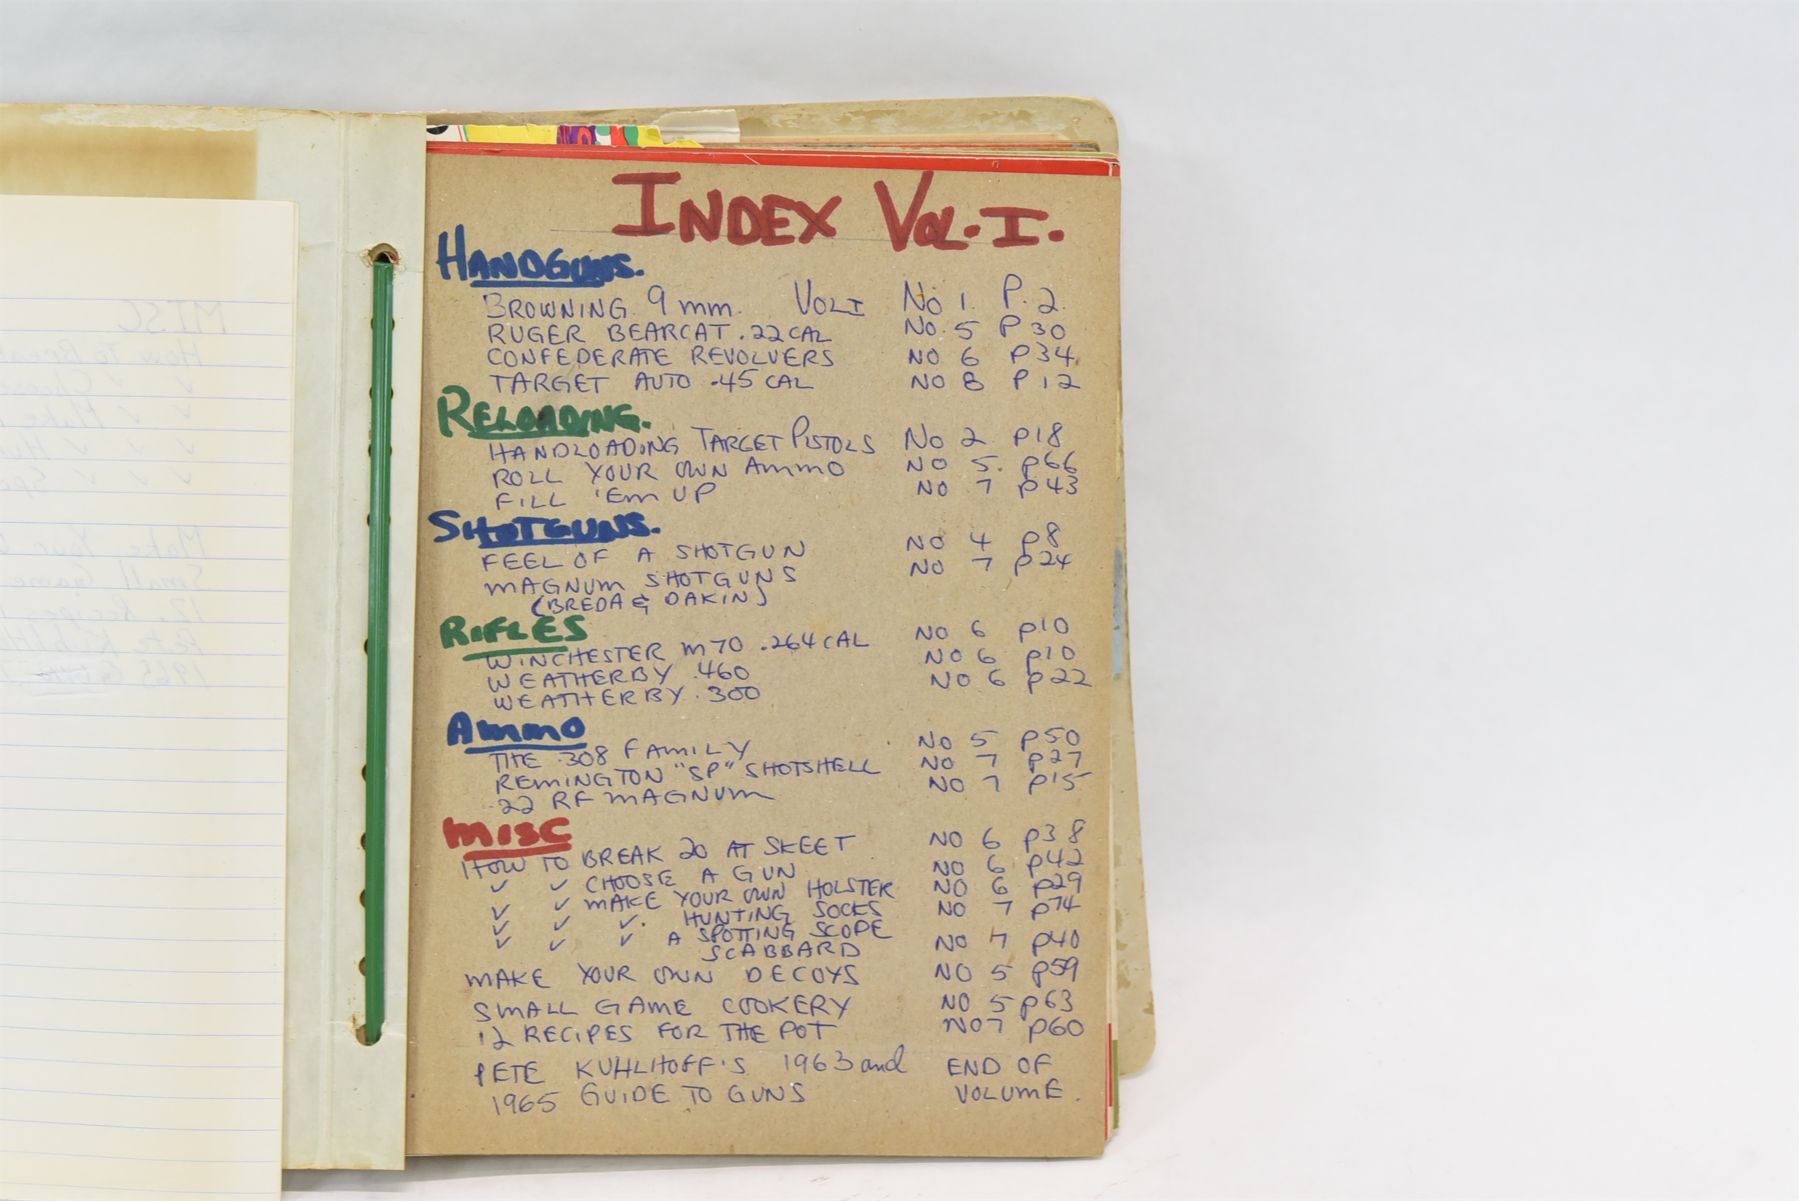 INDEX VOL. I.
HANDGUNS.
BROWNING 9mm. VOL I NO 1. P. 2.
RUGER BEARCAT .22 CAL NO. 5 P 30
CONFEDERATE REVOLVERS NO 6 P34
TARGET AUTO .45 CAL NO 8 P 12
RELOADING.
HANDLOADING TARGET PISTOLS NO 2 P18
ROLL YOUR OWN AMMO NO 5. P66
FILL 'EM UP NO 7 P43
SHOTGUNS.
FEEL OF A SHOTGUN NO 4 P8
MAGNUM SHOTGUNS NO 7 P24
(BREDA & DAKIN)
RIFLES
WINCHESTER M70 .264 CAL NO 6 P10
WEATHERBY .460 NO 6 P10
WEATHERBY .300 NO 6 P22
AMMO
THE .308 FAMILY NO 5 P50
REMINGTON "SP" SHOTSHELL NO 7 P27
.22 RF MAGNUM NO 7 P15
MISC
HOW TO BREAK 20 AT SKEET NO 6 P38
✓ ✓ CHOOSE A GUN NO 6 P42
✓ ✓ MAKE YOUR OWN HOLSTER NO 6 P29
✓ ✓ ✓. HUNTING SOCKS NO 7 P74
✓ ✓ ✓ A SPOTTING SCOPE
SCABBARD NO 7 P40
MAKE YOUR OWN DECOYS NO 5 P59
SMALL GAME COOKERY NO 5 P63
12 RECIPES FOR THE POT NO 7 P60
PETE KUHLHOFF'S 1963 and END OF
1965 GUIDE TO GUNS VOLUME.